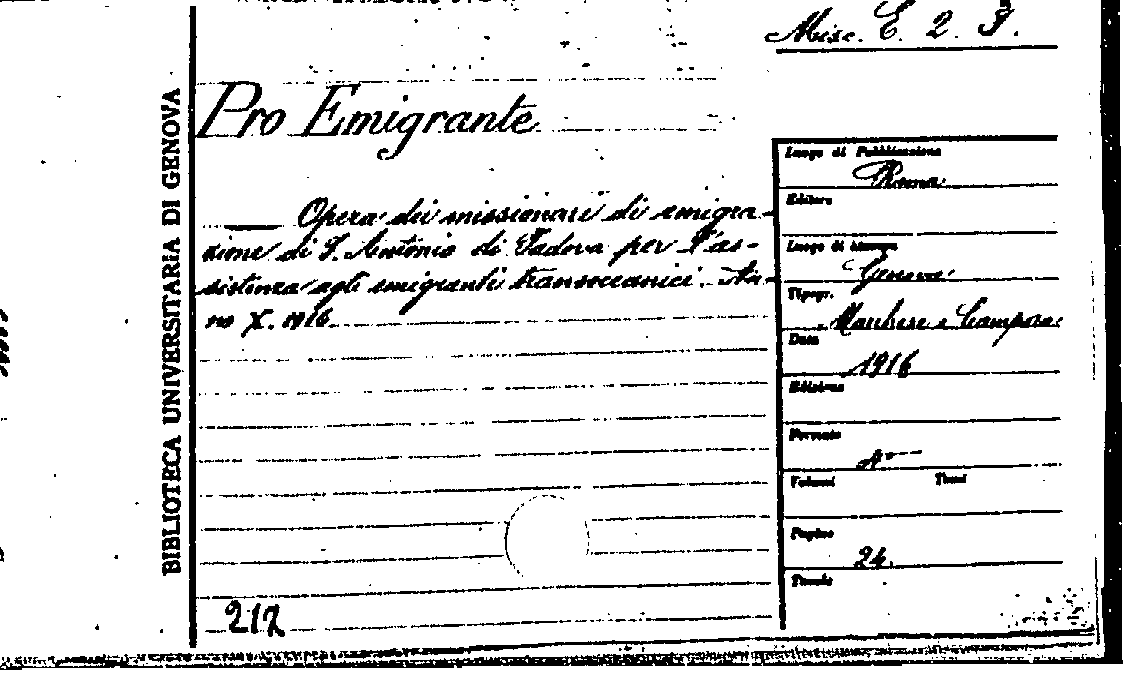 Misc. E. 2. 3.
BIBLIOTECA UNIVERSITARIA DI GENOVA
Pro Emigrante
Opera dei missionari di emigra-
zione di S. Antonio di Padova per l'as-
sistenza agli emigranti transoceanici. An-
no X. 1916
217
Luogo di Pubblicazione
Roma
Editore
Luogo di stampa
Genova
Tipogr.
Marchese e Campora
Data
1916
Edizione
Formato
Volumi Tomi
Pagine
24.
Tavole